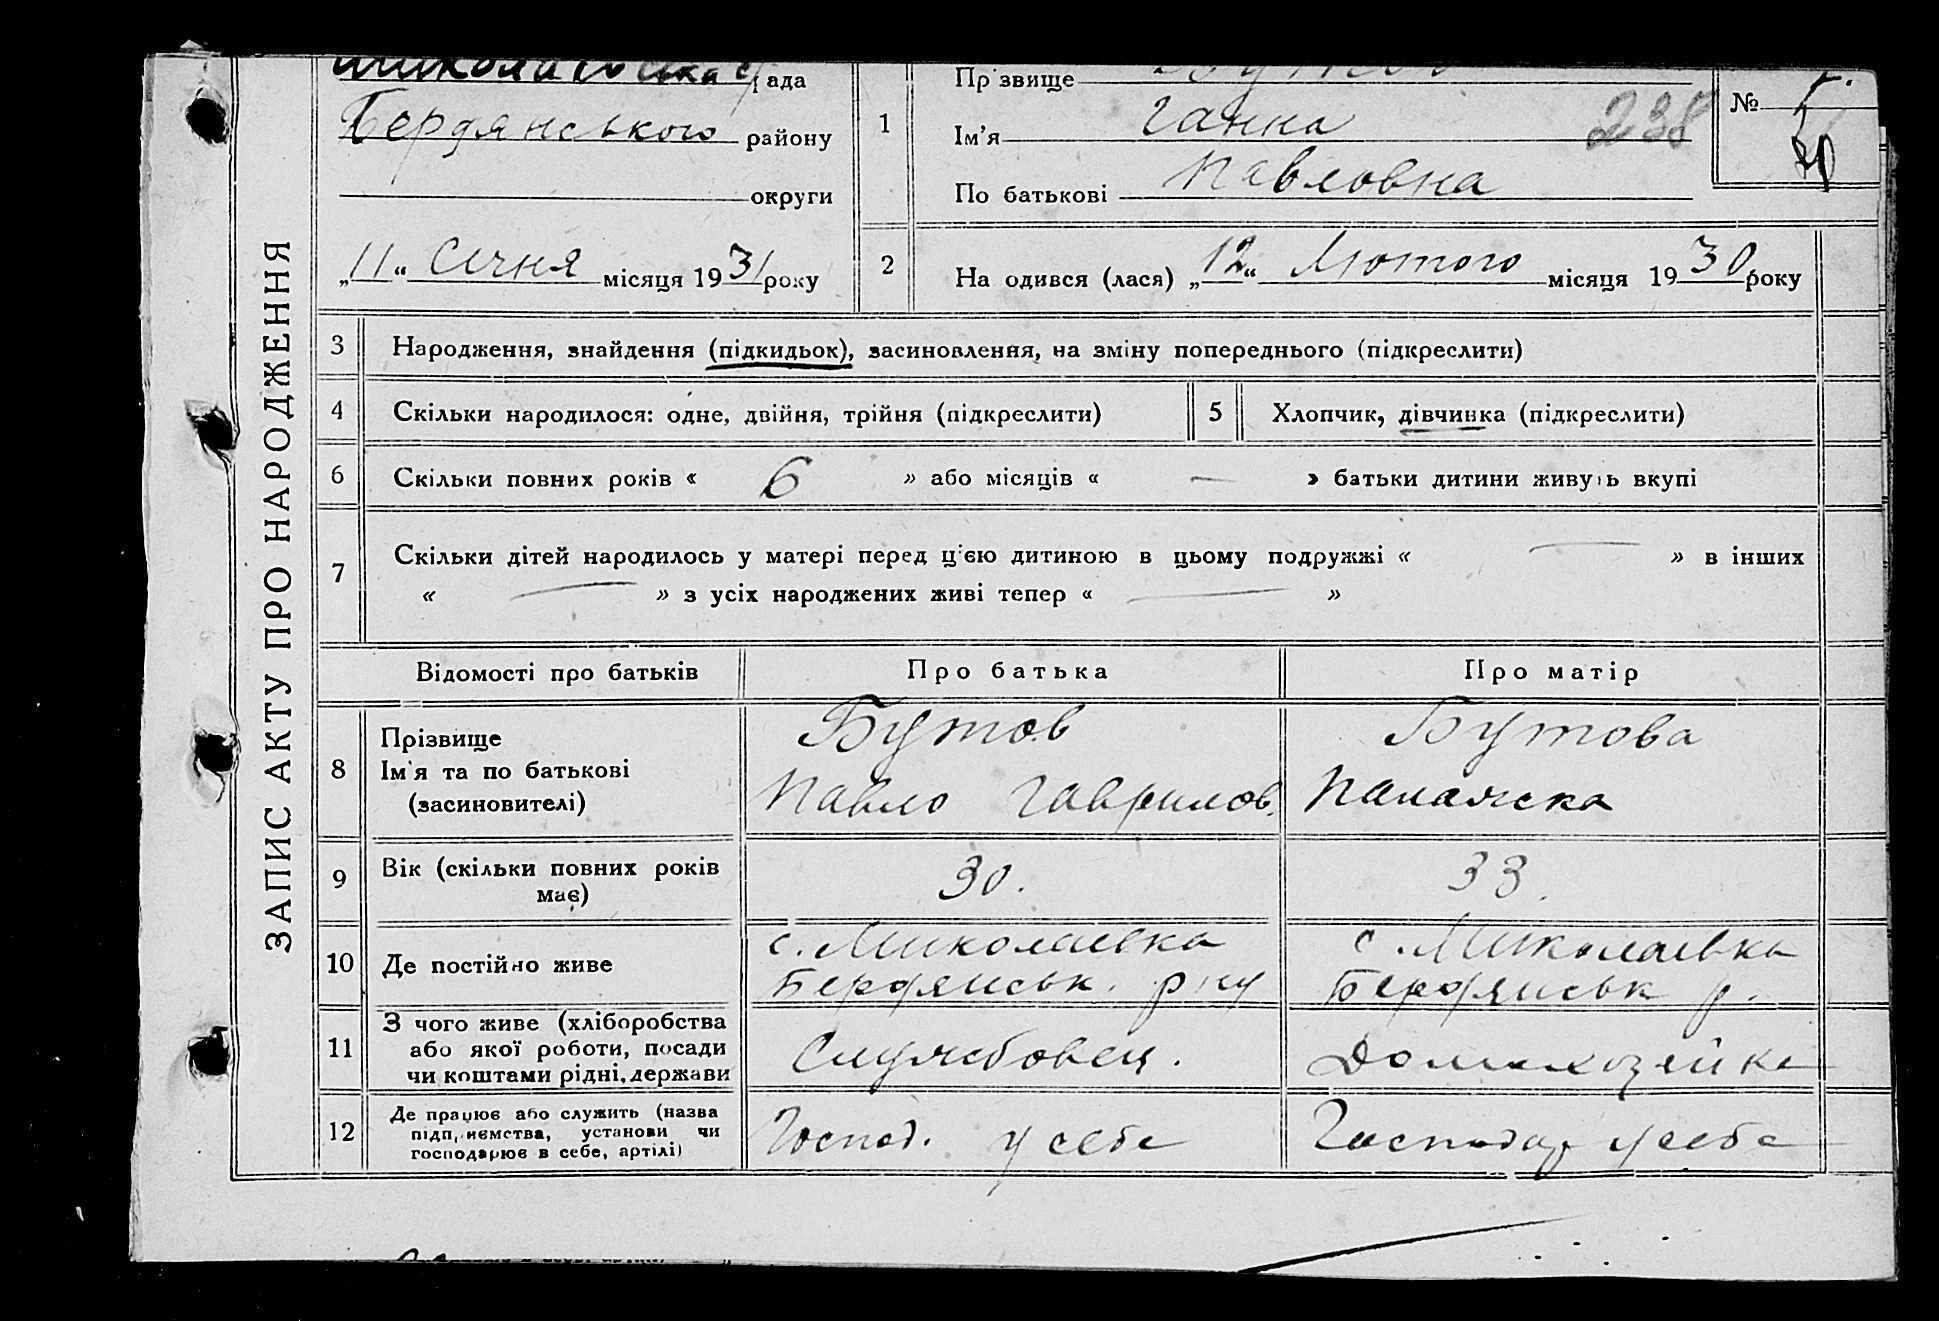 ЗАПИС АКТУ ПРО НАРОДЖЕННЯ
Миколаївська с/рада
Бердянського району
округи
„11“ Січня місяця 1931 року
1
Прізвище
Ім'я Ганна
238
По батькові Павловна
№
2
Народився (лася) „12“ Лютого місяця 1930 року
3 Народження, знайдення (підкидьок), засиновлення, на зміну попереднього (підкреслити)
4 Скільки народилося: одне, двійня, трійня (підкреслити)
5 Хлопчик, дівчинка (підкреслити)
6 Скільки повних років « 6 » або місяців « — » батьки дитини живуть вкупі
7 Скільки дітей народилось у матері перед цією дитиною в цьому подружжі « — » в інших
« — » з усіх народжених живі тепер « — »
Відомості про батьків Про батька Про матір
8 Прізвище
Ім'я та по батькові
(засиновителі)
Бутов
Павло Гаврилов.
Бутова
9 Вік (скільки повних років
має)
30.
33.
10 Де постійно живе
с. Миколаївка
Бердянськ. р-ну
с. Миколаївка
Бердянськ р.
11 З чого живе (хліборобства
або якої роботи, посади
чи коштами рідні, держави
Службовец.
Домохозяйка
12 Де працює або служить (назва
підприємства, установи чи
господарює в себе, артілі)
Господ. у себе
Господар у себе